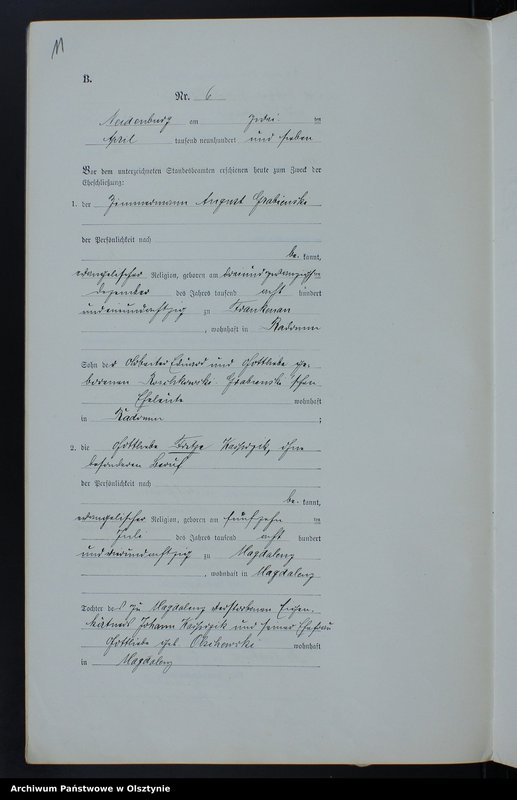 11
B.
Nr. 6
Neidenburg am drei ten
April tausend neunhundert und sieben
Vor dem unterzeichneten Standesbeamten erschienen heute zum Zweck der
Eheschließung:
1. der Zimmermann August Grabienski
der Persönlichkeit nach
be kannt,
evangelischer Religion, geboren am
Dezember des Jahres tausend acht hundert
und achtzig zu Frankenau
, wohnhaft in Radomin
Sohn der Arbeiter Eduard und Gottliebe ge-
borenen Grabienski'schen
Eheleute wohnhaft
in Radomin ;
2. die Gottliebe ohne
besonderen Beruf
der Persönlichkeit nach
be kannt,
evangelischer Religion, geboren am fünfzehn ten
des Jahres tausend acht hundert
und achtzig zu Magdalenz
, wohnhaft in Magdalenz
Tochter des zu Magdalenz verstorbenen Eigen-
kätners Johann und seiner Ehefrau
Gottliebe geb. wohnhaft
in Magdalenz
Archiwum Państwowe w Olsztynie